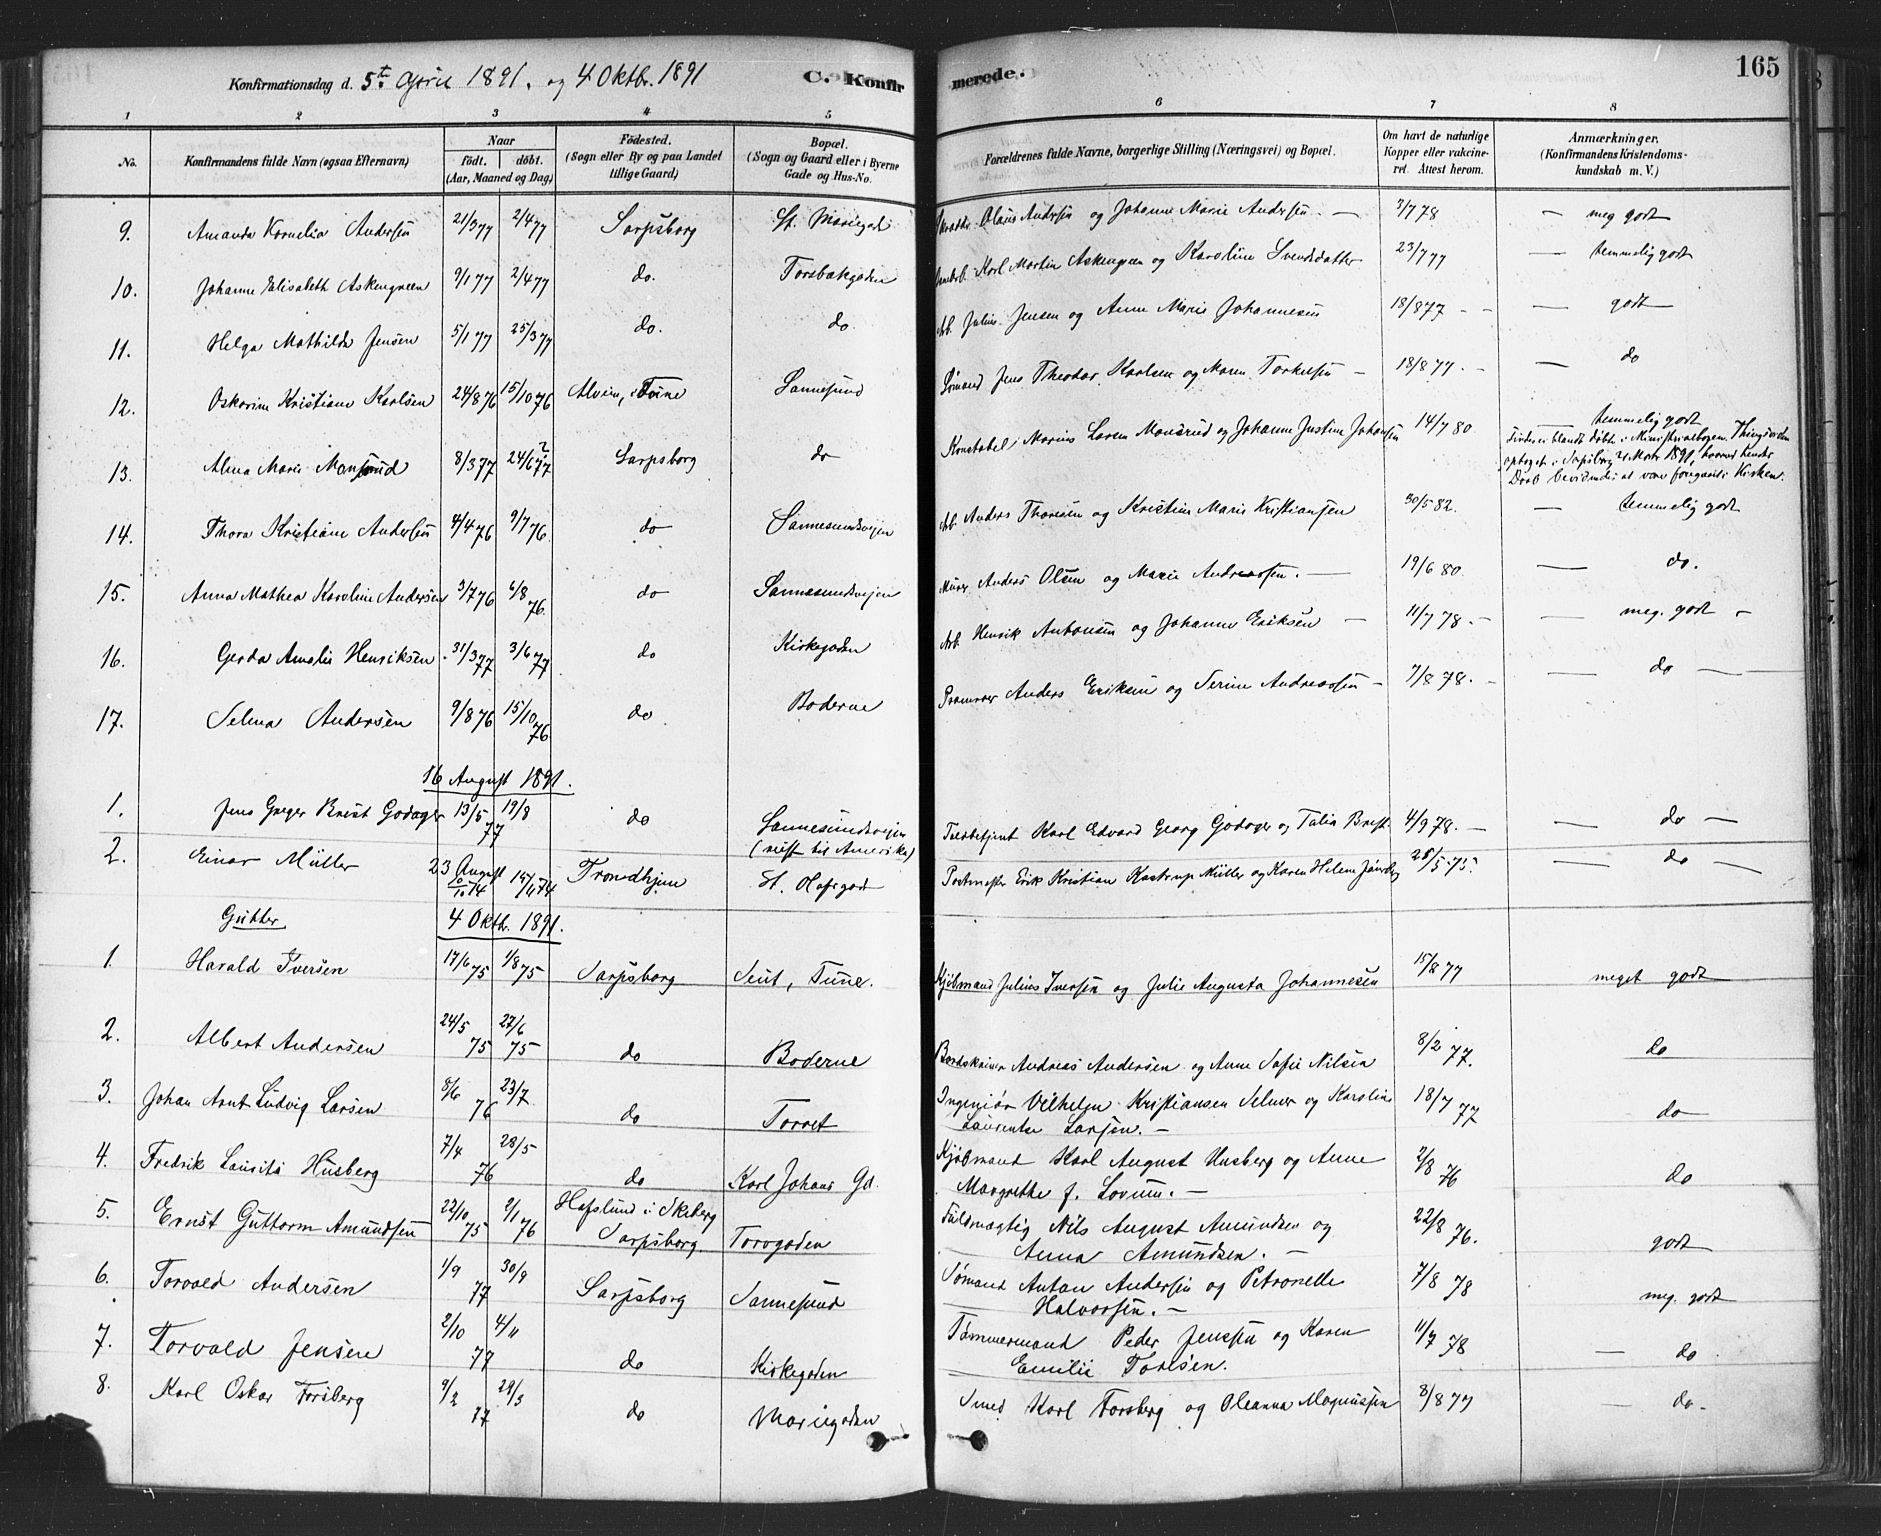 Konfirmationsdag d. 5te April 1891. og 4 Oktbr. 1891 C. Konfirmerede. 165
1 2 3 4 5 6 7 8
No. Konfirmandens fulde Navn (ogsaa Efternavn) Naar født. døbt. (Aar, Maaned og Dag) Fødested. (Sogn eller By og paa Landet tillige Gaard) Bopæl. (Sogn og Gaard eller i Byerne Gade og Hus-No. Forældrenes fulde Navne, borgerlige Stilling (Næringsvei) og Bopæl. Om havt de naturlige Kopper eller vakcineret. Attest herom. Anmærkninger. (Konfirmandens Kristendomskundskab m. V.)
9. Amanda Kornelia Andersen 21/3 77 2/4 77 Sarpsborg St. Mariegd Olaus Andersen og Johanne Marie Andersen — 3/7 78 — meg godt
10. Johanne Elisabeth Askengreen 9/1 77 2/4 77 do. Torsbakgaden Karl Martin Askengreen og Karoline Svendsdatter 23/7 77 — temmelig godt
11. Helga Mathilde Jensen 5/1 77 25/3 77 do. do Arb. Julius Jensen og Anne Marie Johannesen 18/8 77 - - — godt
12. Oskarine Kristiane Karlsen 24/8 76 15/10 76 Alvim, i Tune Sannesund Sømand Jens Theodor Karlsen og Maren Torkelsen — 18/8 77. - — do
13. Alma Marie Monsrud 8/3 77 24/6 77 ? Sarpsborg do Konstabel Marius Laren Monsrud og Johanne Justine Johansen 14/7 80 temmelig godt
Findes ei blandt døbte i Ministerialbogen.
optaget i Sarpsborg 21 Mars 1891, hvorved hendes
Daab bevidnedes at være foregaaet i Kirken.
14. Thora Kristiane Andersen 4/4 76 9/7 76. do Sannesundsvejen Arb. Anders Thoresen og Kristine Marie Kristiansen 30/5 82. — temmelig godt
15. Anna Mathea Karoline Andersen 3/7 76 6/8 76. do Sannesundsvejen Murer Anders Olsen og Marie Andreassen. — 19/6 80. — do.
16. Gerda Amalie Henriksen 31/3 77 3/6 77 do Kirkegaden Arb. Henrik Antonsen og Johanne Eriksen — 11/7 78. - — meg. godt -
17. Selma Andersen 9/8 76 15/10 76. do Boderne Anders Eriksen og Serine Andreassen — 7/8 78. - — do —
16 August 1891.
1. Jens Greger Brest Godager 13/5 77 19/8 do Sannesundsvejen
(reist til Amerika) Karl Edvard Georg Godager og Talia Brest. 4/9 78. — — do —
23 August
2. Einar Müller 10/10 74 15/11 74 Trondhjem St. Hafsgad Postmester Erik Kristian Kastrup Müller og Karen Helene 28/5 75. — do —
Gutter 4 Oktb. 1891.
1. Harald Iversen 17/6 75 1/8 75 Sarpsborg Seut, Tune. Kjøbmand Julius Iversen og Julie Augusta Johannesen 15/8 77 meget godt
2. Albert Andersen 24/5 75 27/6 75 do Boderne Andreas Andersen og Anne Sofie Nilsen 8/2 77. do
3. Johan Arnt Ludvig Larsen 8/6 76 23/7 do Torvet Ingeniør Vilhelm Kristiansen Selmer og Karoline
Laurentse Larsen. — 18/7 77 do
4. Fredrik Laurits Husberg 7/4 76 28/5 do Karl Johans Gd. Kjøbmand Karl August Husberg og Anne
Margrethe f. — 2/8 76 do
5. Ernst Guttorm Amundsen 22/10 75 2/1 76 Hafslund i Skeberg
Sarpsborg. Torvgaden Fuldmægtig Nils August Amundsen og
Anna Amundsen. — 22/8 76. godt
6. Torvald Andersen 1/9 77 30/9 Sarpsborg Sannesund Sømand Anton Andersen og Petronelle
Halvorsen. — 7/8 78 meg. godt
7. Torvald Jensen 2/10 77 4/11 do Kirkegaden Tømmermand Peder Jensen og Karen
Emilie Toresen. 11/7 78 — do.
8. Karl Oskar Forsberg 9/2 77 29/3 do Mariegaden Smed Karl Forsberg og Oleanna Magnussen 8/8 77 — do.